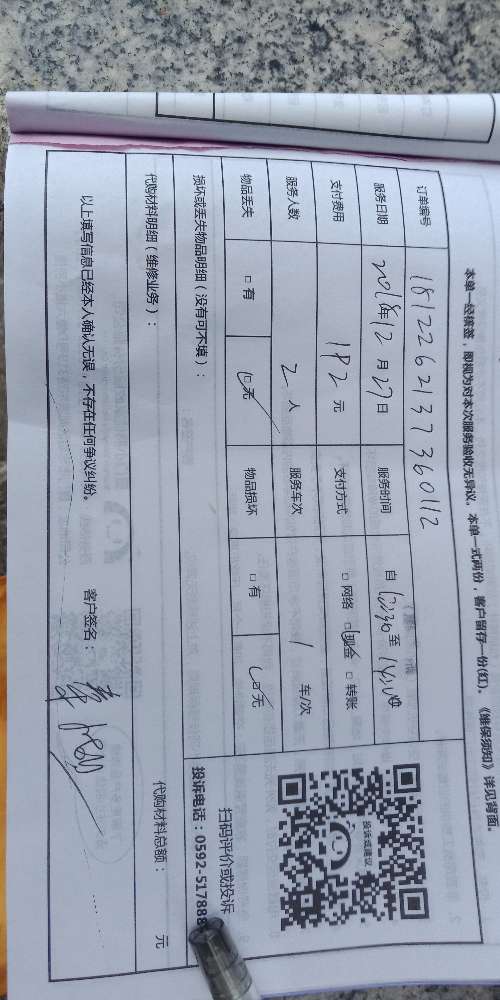 本单一经接签，即视为对本次服务验收无异议。本单一式两份，客户留存一份(红)。《维保须知》详见背面。
订单编号 1812262137360112
服务日期 2018年12月27日 服务时间 自 至
支付费用 182元 支付方式 □网络 □现金 □转账
服务人数 2人 服务车次 1车/次
物品丢失 □有 □无 物品损坏 □有 □无
损坏或丢失物品明细（没有可不填）：
代购材料明细（维修业务）：
代购材料总额： 元
以上填写信息已经本人确认无误，不存在任何争议纠纷。 客户签名：
投诉或建议
扫码评价或投诉
投诉电话：0592-517888